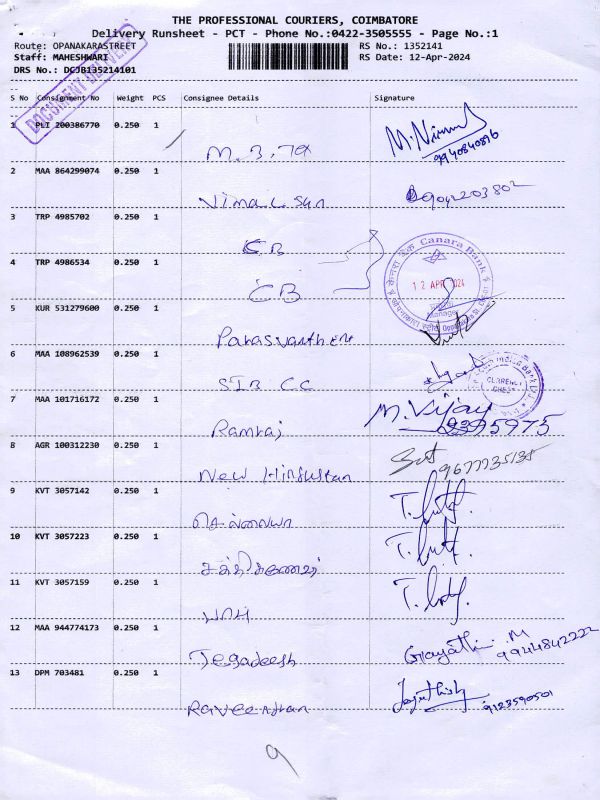 THE PROFESSIONAL COURIERS, COIMBATORE
Delivery Runsheet - PCT - Phone No.:0422-3505555 - Page No.:1
Route: OPANAKARASTREET
RS No.: 1352141
Staff: MAHESHWARI
RS Date: 12-Apr-2024
DRS No.: DCJB135214101
DOCUMENT DELIVERY
S No Consignment No Weight PCS Consignee Details Signature
1 PLI 200386770 0.250 1
9940840896
2 MAA 864299074 0.250 1
Nimal Sun
9042203802
3 TRP 4985702 0.250 1
CB
Canara Bank
4 TRP 4986534 0.250 1
CB
12 APR 2024
Manager
5 KUR 531279600 0.250 1
6 MAA 108962539 0.250 1
SIB CC
CURRENCY CHEST
7 MAA 101716172 0.250 1
Ramraj
M. Vijay
8 AGR 100312230 0.250 1
New Hindustan
9677735135
9 KVT 3057142 0.250 1
செல்லையா
10 KVT 3057223 0.250 1
11 KVT 3057159 0.250 1
12 MAA 944774173 0.250 1
Jegadeesh
Gayathri M
9944842222
13 DPM 703481 0.250 1
Raveendran
9123590501
9